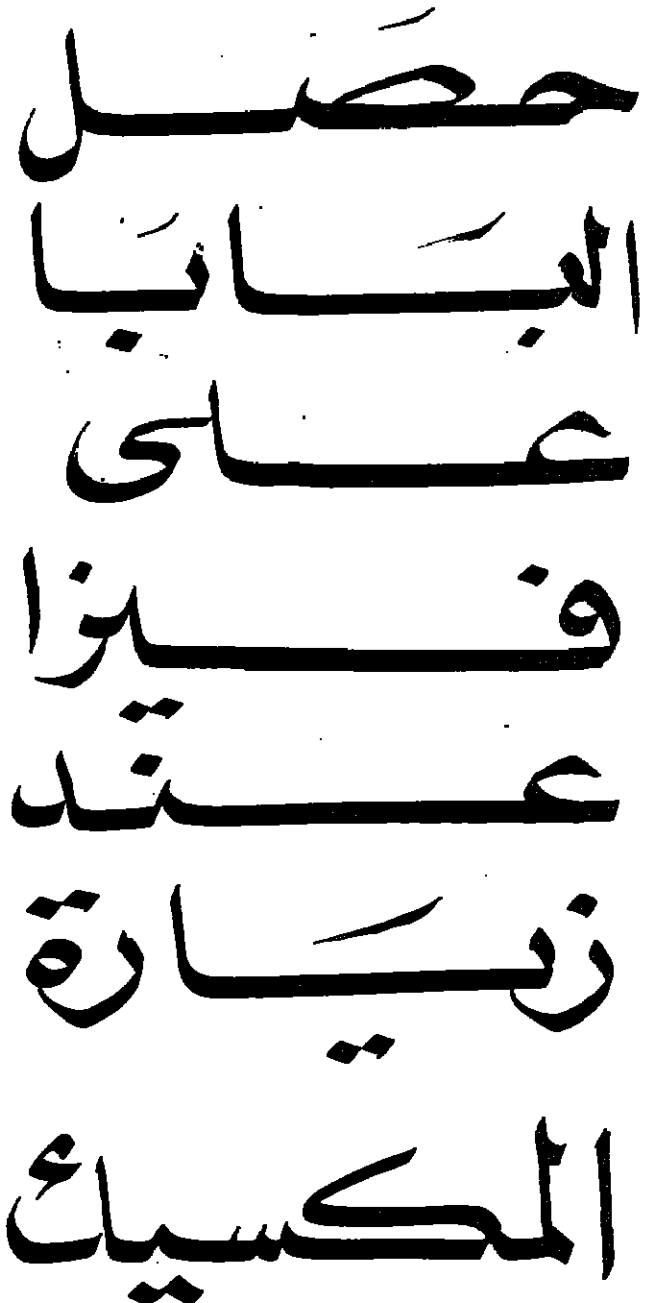 حصَل
البَابَا
على
فيزا
عند
زيَارة
المكسيك